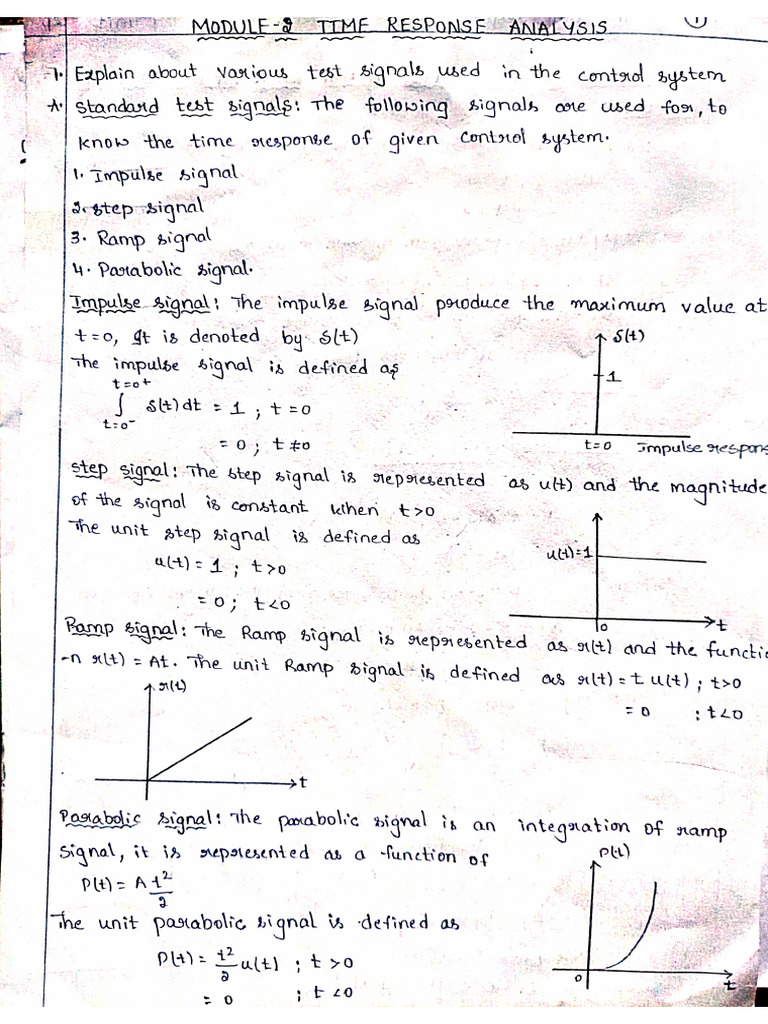 MODULE-2 TIME RESPONSE ANALYSIS
1
1. Explain about various test signals used in the control system
A. Standard test signals: The following signals are used for, to
know the time response of given control system.
1. Impulse signal
2. step signal
3. Ramp signal
4. Parabolic signal.
Impulse signal: The impulse signal produce the maximum value at
t=0, It is denoted by δ(t)
The impulse signal is defined as
t=0+
∫ δ(t)dt = 1 ; t=0
t=0-
= 0 ; t≠0
δ(t)
1
t=0 Impulse respons
step signal: The step signal is represented as u(t) and the magnitude
of the signal is constant when t>0
The unit step signal is defined as
u(t) = 1 ; t>0
= 0 ; t<0
u(t)=1
0
t
Ramp signal: The Ramp signal is represented as r(t) and the functio
-n r(t) = At. The unit Ramp signal is defined as r(t)=t u(t) ; t>0
= 0 ; t<0
r(t)
t
Parabolic signal: The parabolic signal is an integration of ramp
signal, it is represented as a function of
P(t) = A t²/2
The unit parabolic signal is defined as
P(t) = t²/2 u(t) ; t>0
= 0 ; t<0
P(t)
0
t